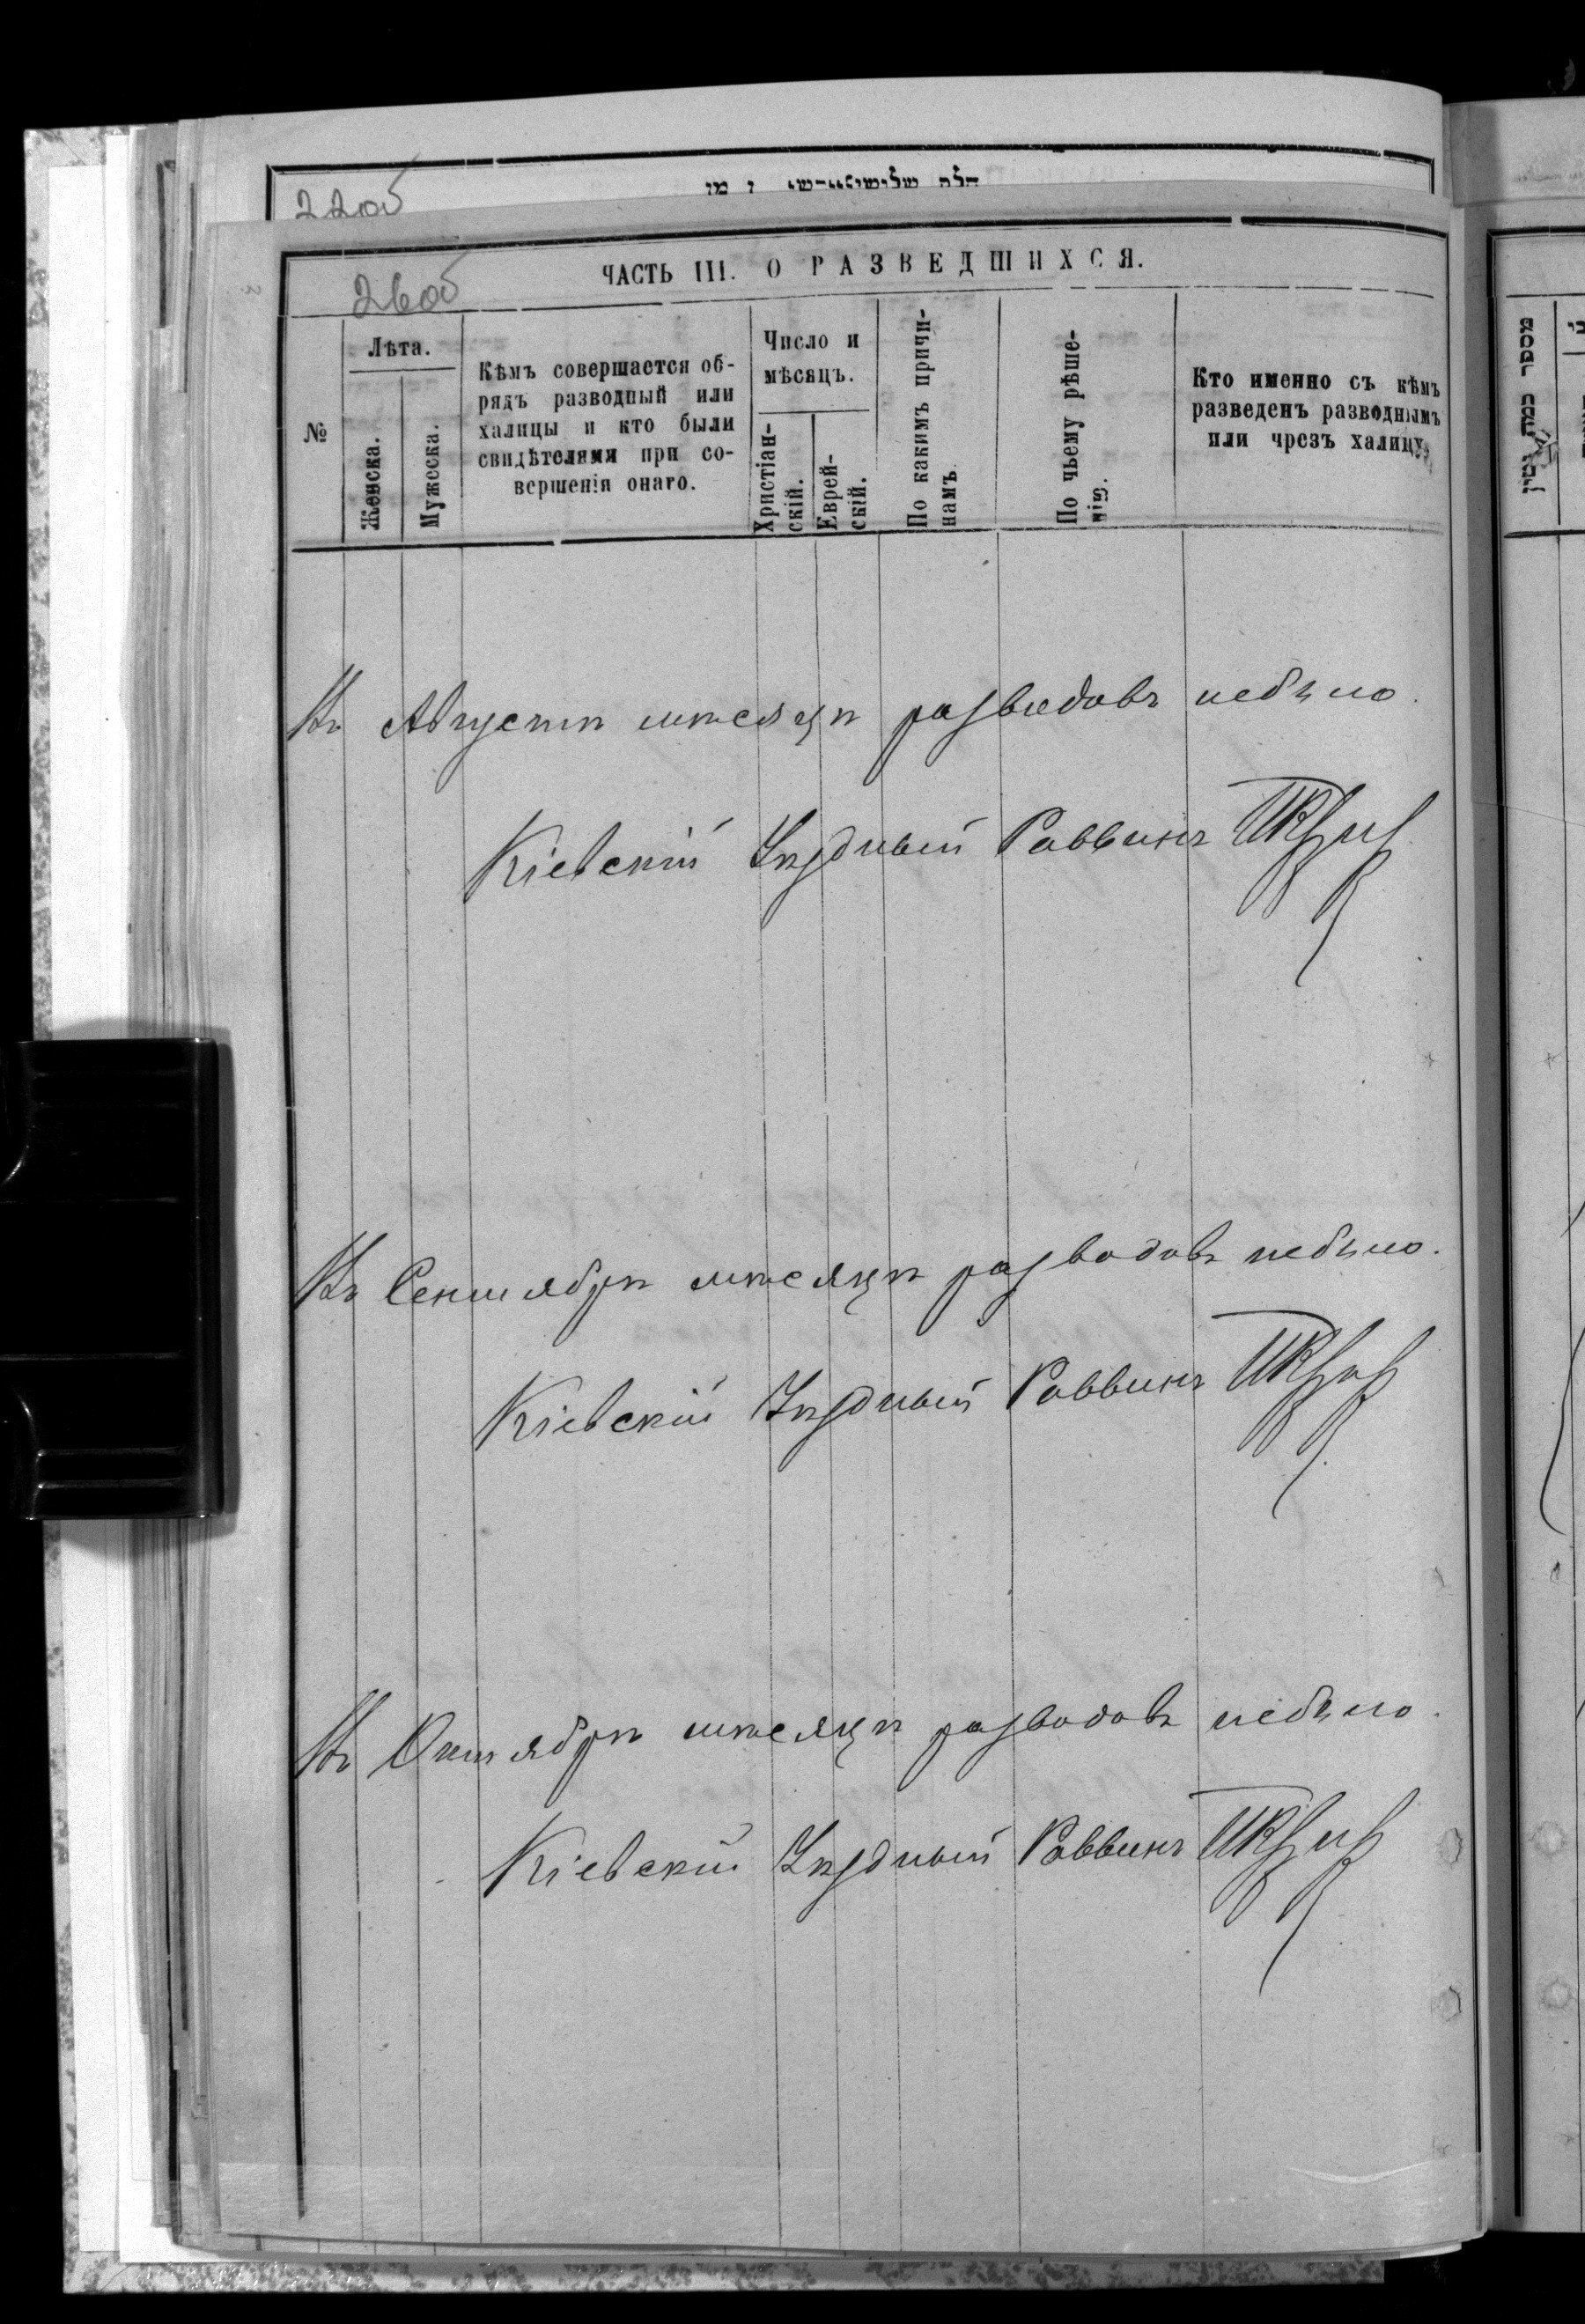 22об
26об
ЧАСТЬ III. О РАЗВЕДШИХСЯ.
№
Лѣта.
Женска.
Мужеска.
Кѣмъ совершается об-
рядъ разводный или
халицы и кто были
свидѣтелями при со-
вершенія онаго.
Число и
мѣсяцъ.
Христіан-
скій.
Еврей-
скій.
По какимъ причи-
намъ
По чьему рѣше-
нію.
Кто именно съ кѣмъ
разведенъ разводнымъ
или чрезъ халицу.
Въ Августѣ мѣсяцѣ разводовъ небыло.
Кіевскій Уѣздный Раввинъ
Въ Сентябрѣ мѣсяцѣ разводовъ небыло.
Кіевскій Уѣздный Раввинъ
Въ Октябрѣ мѣсяцѣ разводовъ небыло.
Кіевскій Уѣздный Раввинъ
מספר כמה גטין